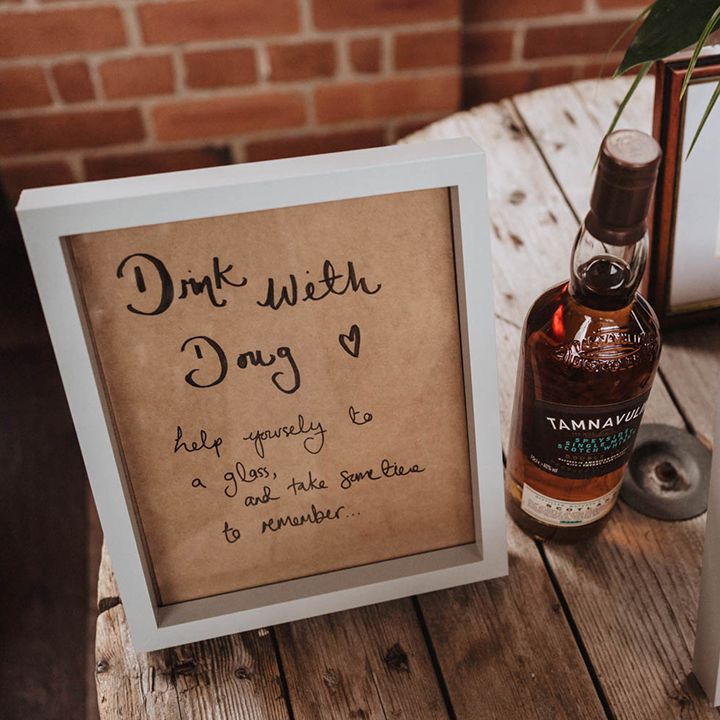 Drink with
Doug
help yourself to
a glass,
and take sometime
to remember...
TAMNAVULIN
SPEYSIDE
SINGLE MALT
SCOTCH WHISKY